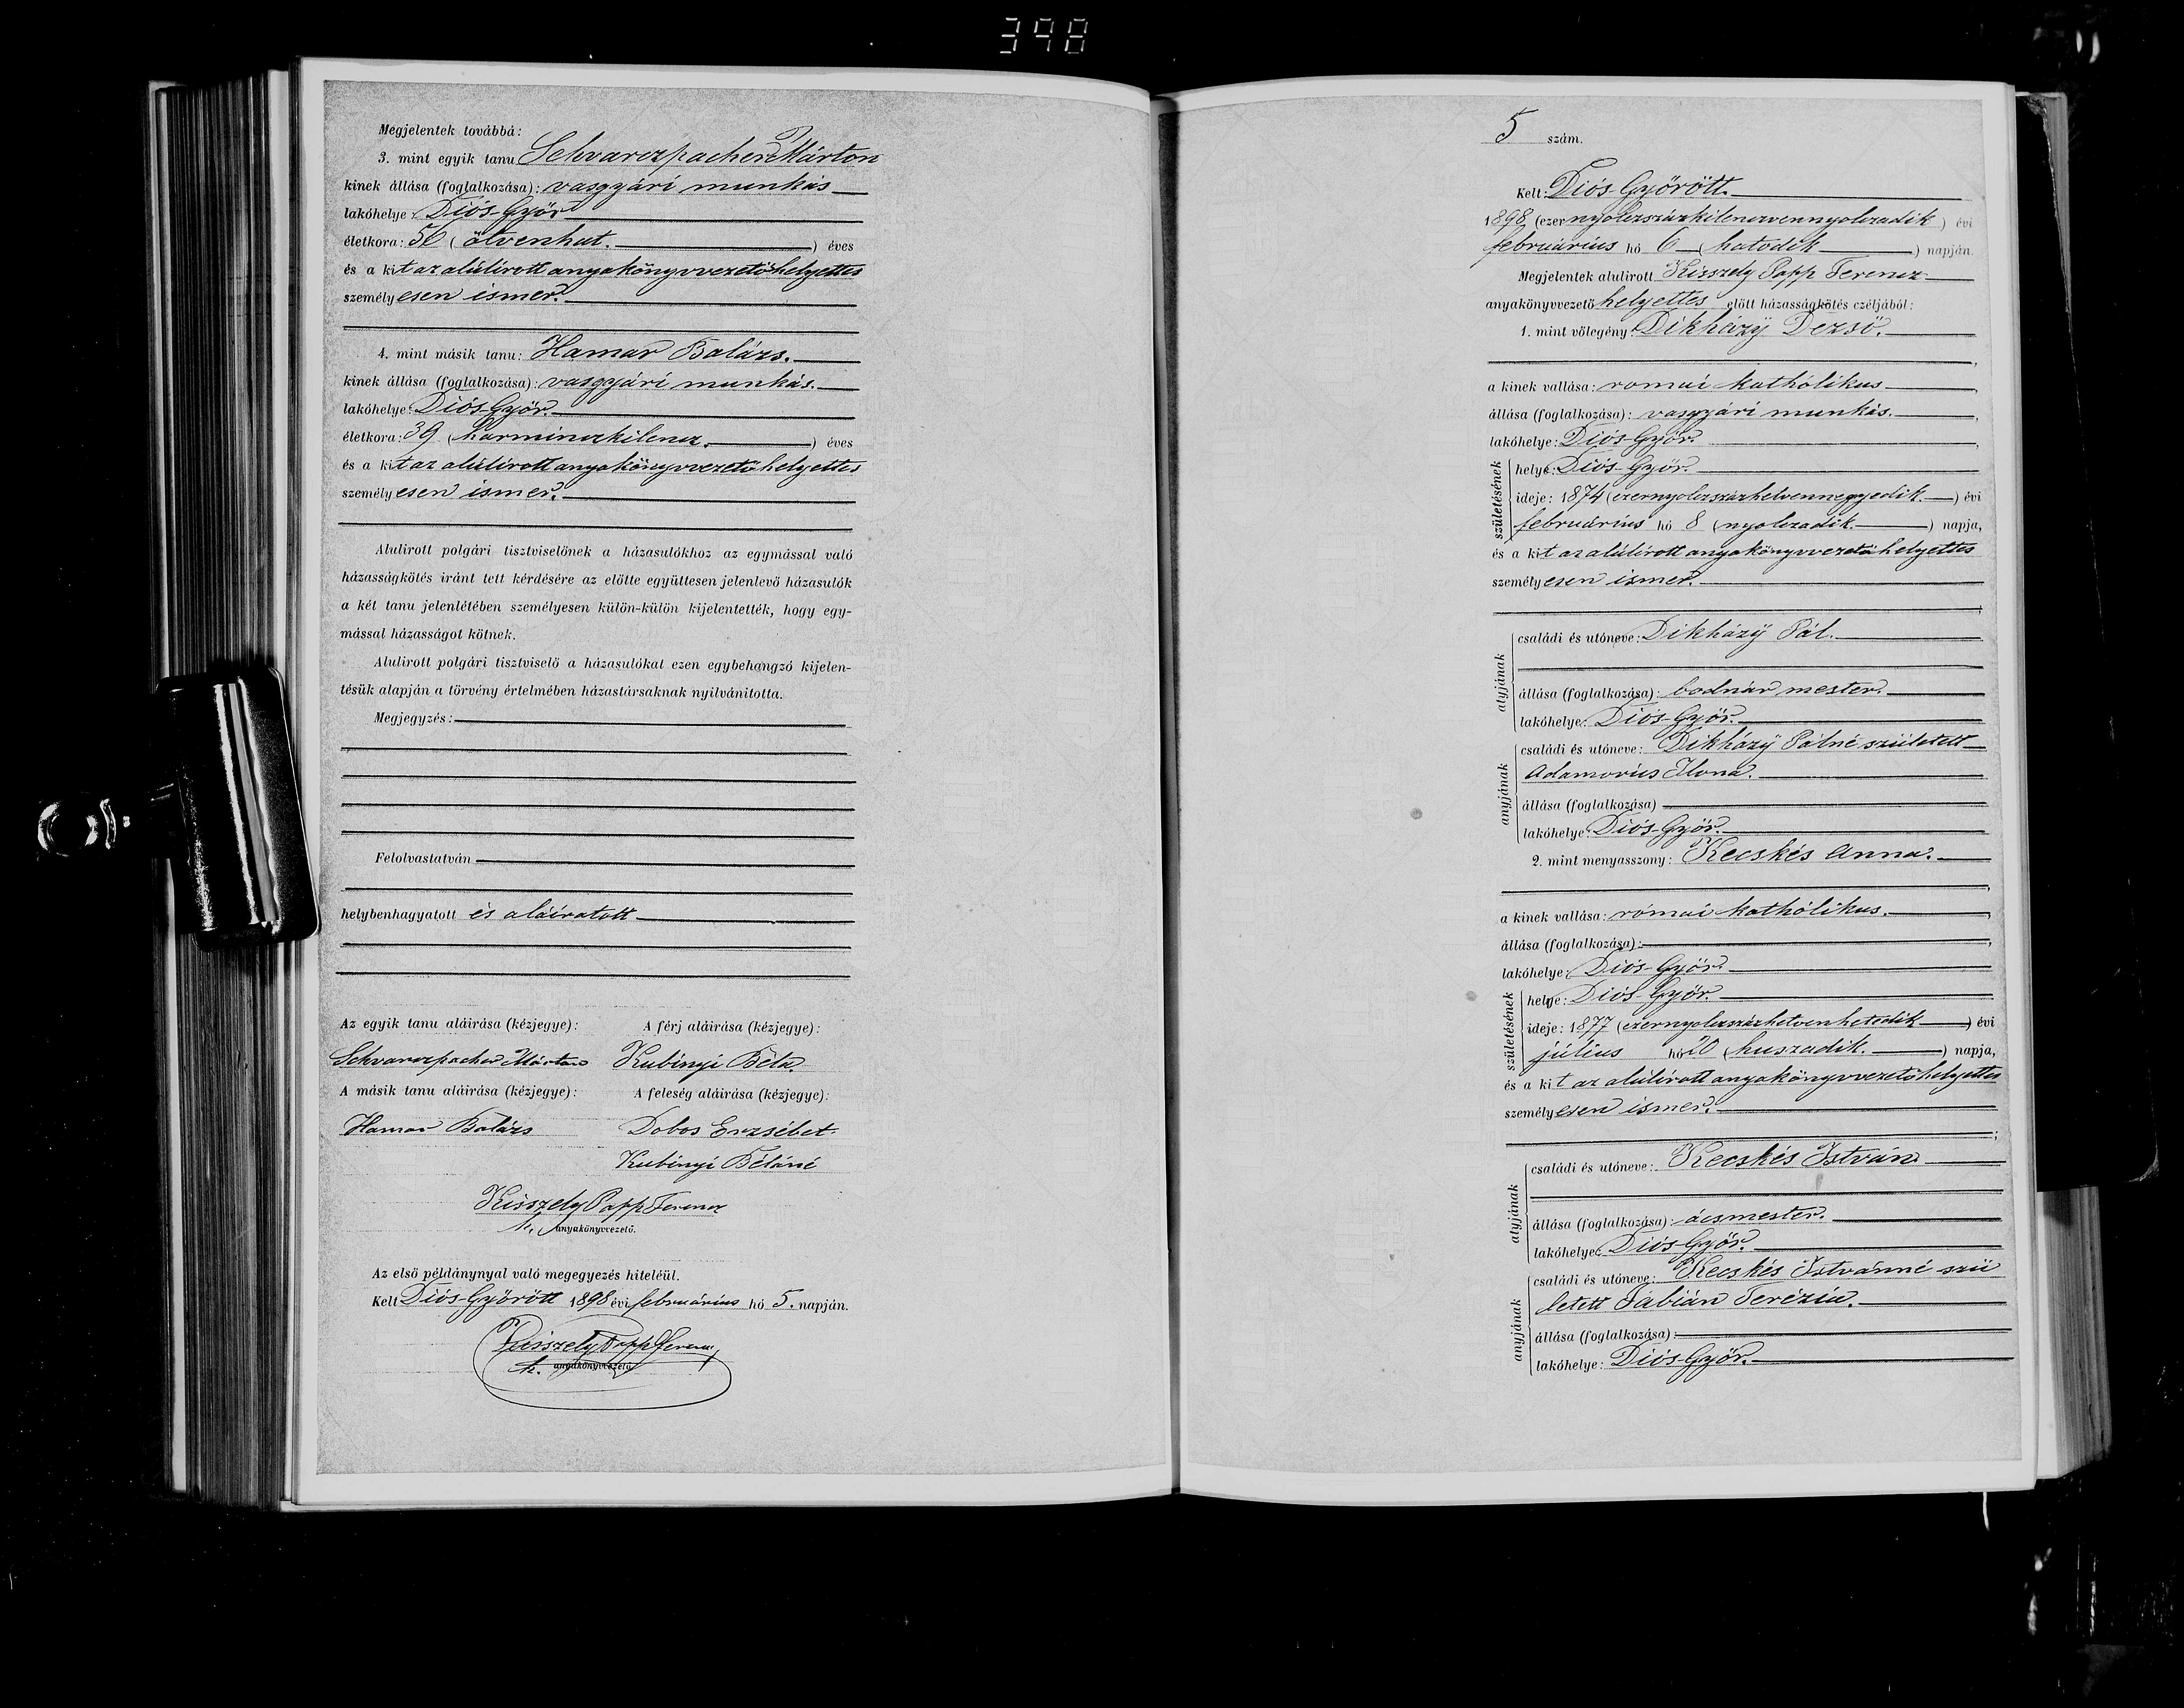 398
Megjelentek továbbá:
3. mint egyik tanu Schvarczpacher Márton
kinek állása (foglalkozása): vasgyári munkás
lakóhelye: Diós-Győr
életkora: 56 (ötvenhat.) éves
és a kit az alúlirott anyakönyvvezetőhelyettes
személyesen ismer.
4. mint másik tanu: Hamar Balázs.
kinek állása (foglalkozása): vasgyári munkás.
lakóhelye: Diós-Győr.
életkora: 39 (harminczkilencz.) éves
és a kit az alúlirott anyakönyvvezetőhelyettes
személyesen ismer.
Alulirott polgári tisztviselőnek a házasulókhoz az egymással való
házasságkötés iránt tett kérdésére az előtte együttesen jelenlevő házasulók
a két tanu jelenlétében személyesen külön-külön kijelentették, hogy egy-
mással házasságot kötnek.
Alulirott polgári tisztviselő a házasulókat ezen egybehangzó kijelen-
tésük alapján a törvény értelmében házastársaknak nyilvánitotta.
Megjegyzés:
Felolvastatván
helybenhagyatott és aláiratott
Az egyik tanu aláirása (kézjegye): A férj aláirása (kézjegye):
Schvarczpacher Márton Kubinyi Béla
A másik tanu aláirása (kézjegye): A feleség aláirása (kézjegye):
Hamar Balázs Dobos Erzsébet
Kubinyi Béláné
Kisszely Papp Ferencz
h. anyakönyvvezető.
Az első példánynyal való megegyezés hiteléül.
Kelt Diós-Győrött 1898 évi februárius hó 5. napján.
Kisszely Papp Ferencz
h. anyakönyvvezető
5 szám.
Kelt: Diós-Győrött.
1898 (ezernyolczszázkilenczvennyolczadik) évi
februárius hó 6 (hatodik) napján.
Megjelentek alulirott Kisszely Papp Ferencz
anyakönyvvezető helyettes előtt házasságkötés czéljából:
1. mint vőlegény: Dikházÿ Dezső.
a kinek vallása: romai kathólikus
állása (foglalkozása): vasgyári munkás.
lakóhelye: Diós-Győr.
születésének
helye: Diós-Győr.
ideje: 1874 (ezernyolczszázhetvennegyedik.) évi
februárius hó 8 (nyolczadik.) napja,
és a kit az alúlirott anyakönyvvezetőhelyettes
személyesen ismer.
atyjának
családi és utóneve: Dikházÿ Pál.
állása (foglalkozása): bodnár mester.
lakóhelye: Diós-Győr.
anyjának
családi és utóneve: Dikházÿ Pálné született
Adamovics Ilona.
állása (foglalkozása)
lakóhelye: Diós-Győr.
2. mint menyasszony: Kecskés Anna.
a kinek vallása: római kathólikus.
állása (foglalkozása):
lakóhelye: Diós-Győr.
születésének
helye: Diós-Győr.
ideje: 1877 (ezernyolczszázhetvenhetedik) évi
július hó 20 (huszadik.) napja,
és a kit az alúlirott anyakönyvvezetőhelyettes
személyesen ismer.
atyjának
családi és utóneve: Kecskés István
állása (foglalkozása): ácsmester.
lakóhelye: Diós-Győr.
anyjának
családi és utóneve: Kecskés Istvánné szü
letett Fábián Terézia.
állása (foglalkozása):
lakóhelye: Diós-Győr.